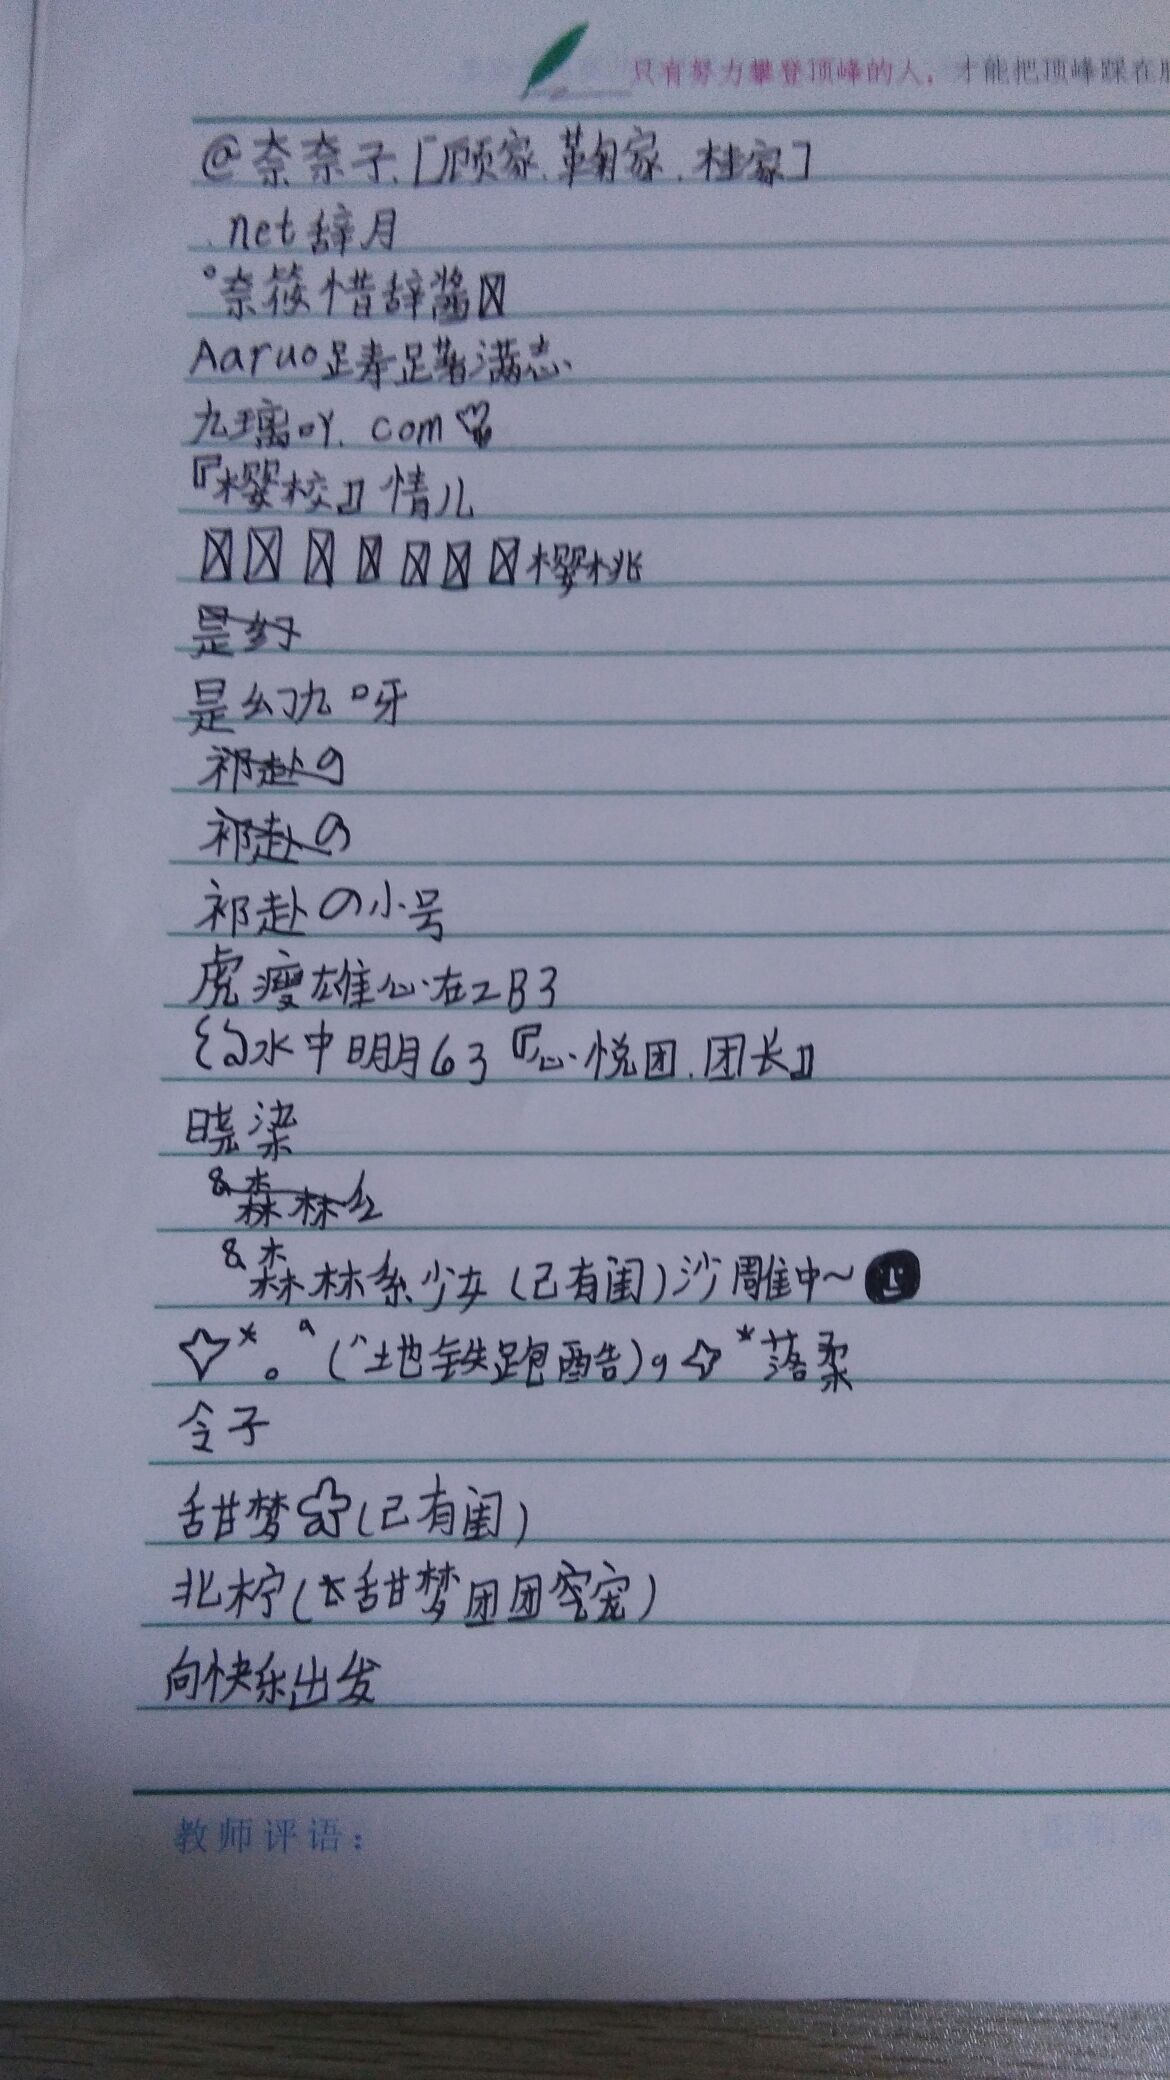 只有努力攀登顶峰的人，才能把顶峰踩在
@奈奈子.[顾家.鞠家.桂家]
.net辞月
°奈筱惜辞酱
Aaruo足寿足著满志.
九璃吖.com
『樱校』情儿
樱桃
是幻
是幻九呀
祁赴の
祁赴の
祁赴の小号
虎瘦雄心在2B3
水中明月63『心悦团.团长』
晓柒
&森林
&森林系少女(已有闺)沙雕中~
☆*。(地铁跑酷)☆*落柔
令子
甜梦(已有闺)
北柠(甜梦团团宠)
向快乐出发
教师评语：